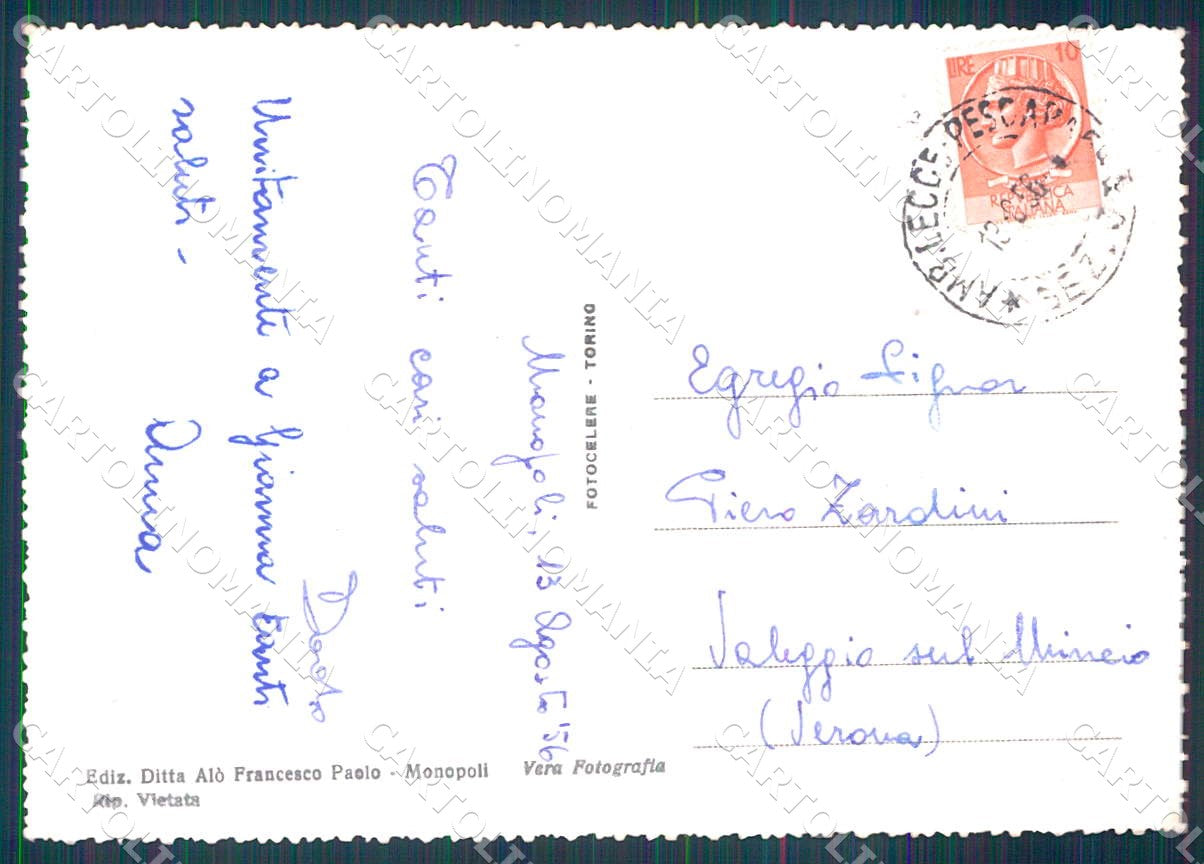 Monopoli, 13 Agosto '56
Tanti cari saluti
Unitamente a Gianna tanti
saluti -
Anna
LIRE 10
REPUBBLICA
ITALIANA
AMB. LECCE-PESCARA
SEZ.
FOTOCELERE - TORINO
Egregio Signor
Piero Zardini
Valeggio sul Mincio
(Verona)
Ediz. Ditta Alò Francesco Paolo - Monopoli
Vera Fotografia
Rip. Vietata
CARTOLINOMANIA